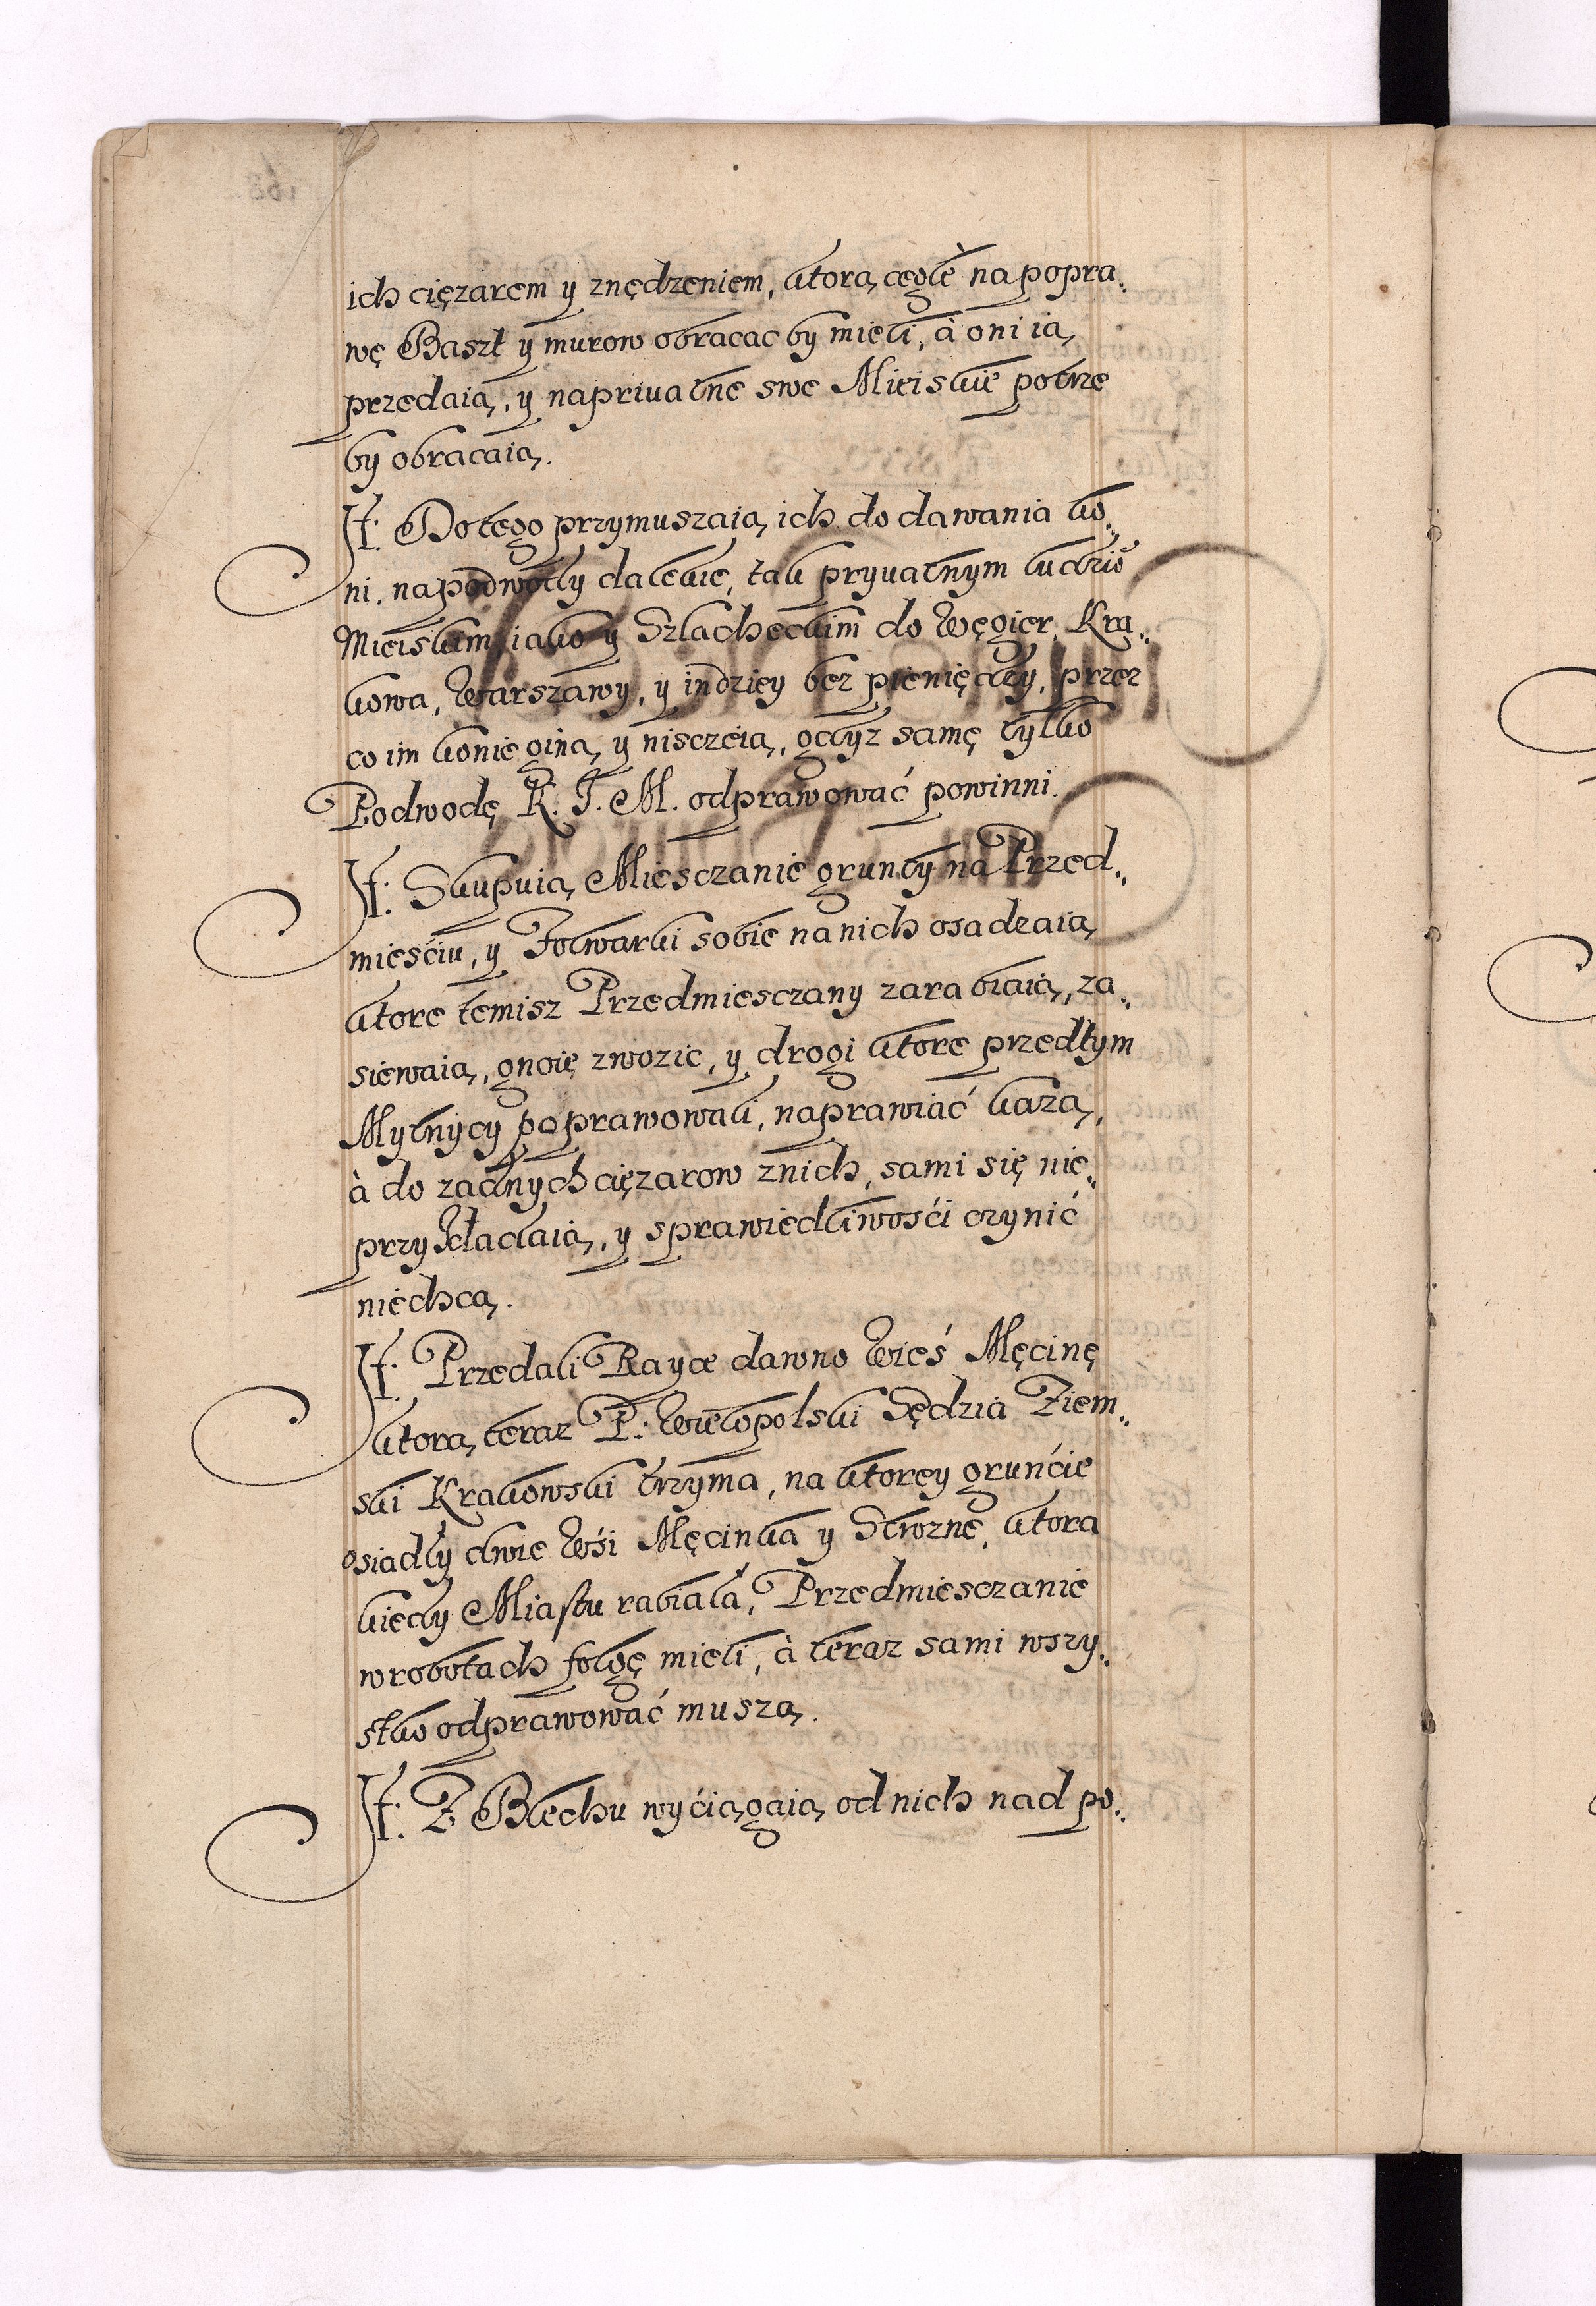 ich cięzarem y znędzeniem, ktorą cegłę na popra„
wę Baszt y murow obracac by mieli, à oni ią
przedaią, y na priuatne swe Mieiskie potrze
by obracaią.
It: Do tego przymuszaią ich do dawania ko„
ni, na podwody dalekie, tak pryuatnym ludziō
Mieiskim iako y Szlacheckim do Węgier, Kra„
kowa, Warszawy, y indziey bez pieniędzy, przez
co im konie giną y nisczeią, gdyz samę tylko
Podwodę K. J. M. odprawować powinni.
It: Skupuią Miesczanie grunty na Przed„
mieśćiu, y Folwarki sobie na nich osadzaią
ktore temisz Przedmiesczany zarabiaią, za„
siewaią, gnoię zwozic, y drogi ktore przedtym
Mytnycy poprawowali, naprawiáć kazą,
à do zadnych cięzarow z nich, sami się nie„
przykładaią, y sprawiedliwośći czynić
niechcą.
It: Przedali Rayce dawno Wieś Męcinę
ktorą teraz P: Wielopolski Sędzia Ziem„
ski Krakowski trzyma, na ktorey grunćie
osiadły dwie Wśi Męcinka y Strozne, ktora
kiedy Miastu rabiała, Przedmiesczanie
w robotach folgę mieli, à teraz sami wszy„
stko odprawować muszą.
It: Z Blechu wyćiągaią od nich nad po„